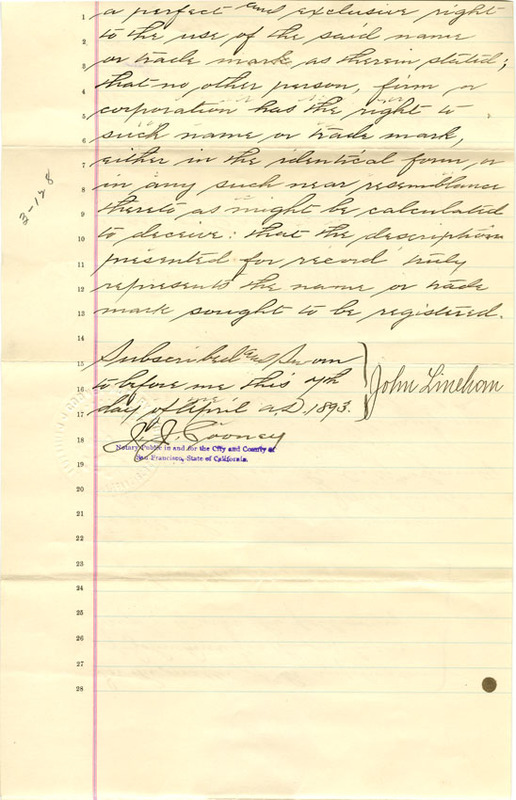 1 a perfect and exclusive right
2 to the use of the said name
3 or trade mark as therein stated;
4 that no other person, firm or
5 corporation has the right to
6 such name or trade mark,
7 either in the identical form or
8 in any such near resemblance
9 thereto as might be calculated
10 to deceive: that the description
11 presented for record truly
12 represents the name or trade
13 mark sought to be registered.
14
15 Subscribed and Sworn
16 to before me this 7th
17 day of April A.D. 1893.
John Linehan
18 J. J. Cooney
Notary Public in and for the City and County of
San Francisco, State of California.
19
20
21
22
23
24
25
26
27
28
3-128